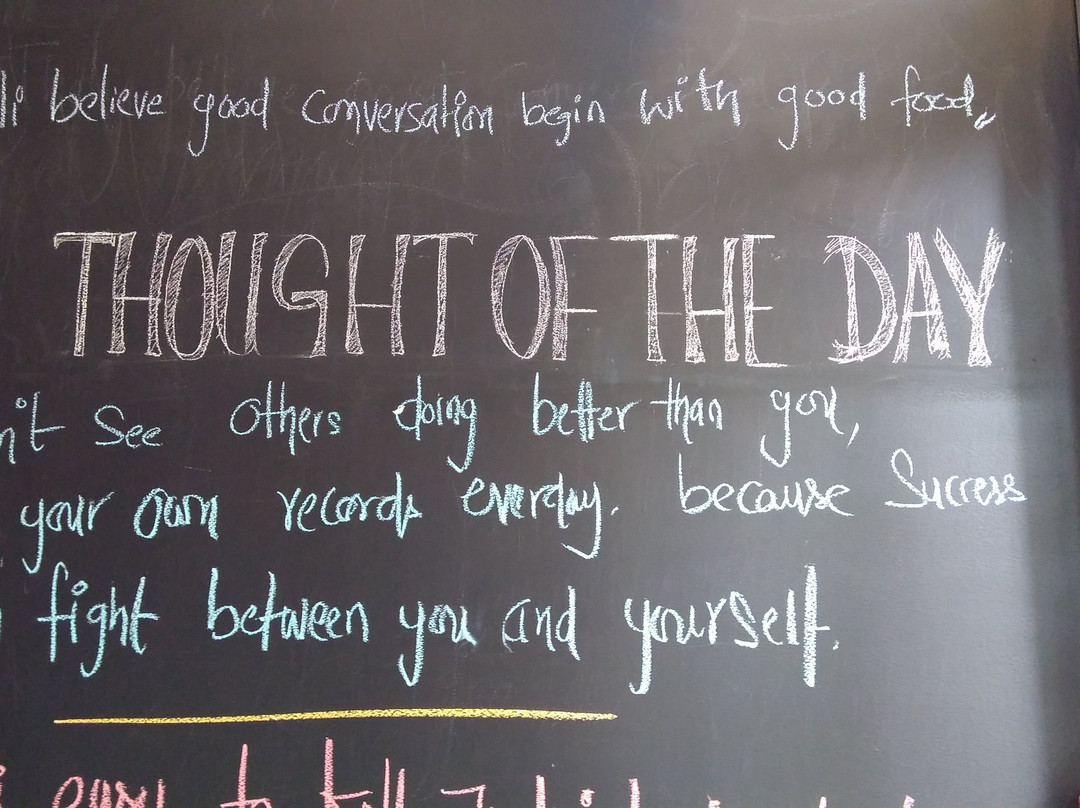 li believe good conversation begin with good food.
THOUGHT OF THE DAY
n't see others doing better than you,
your own records everday. because Success
fight between you and yourself.